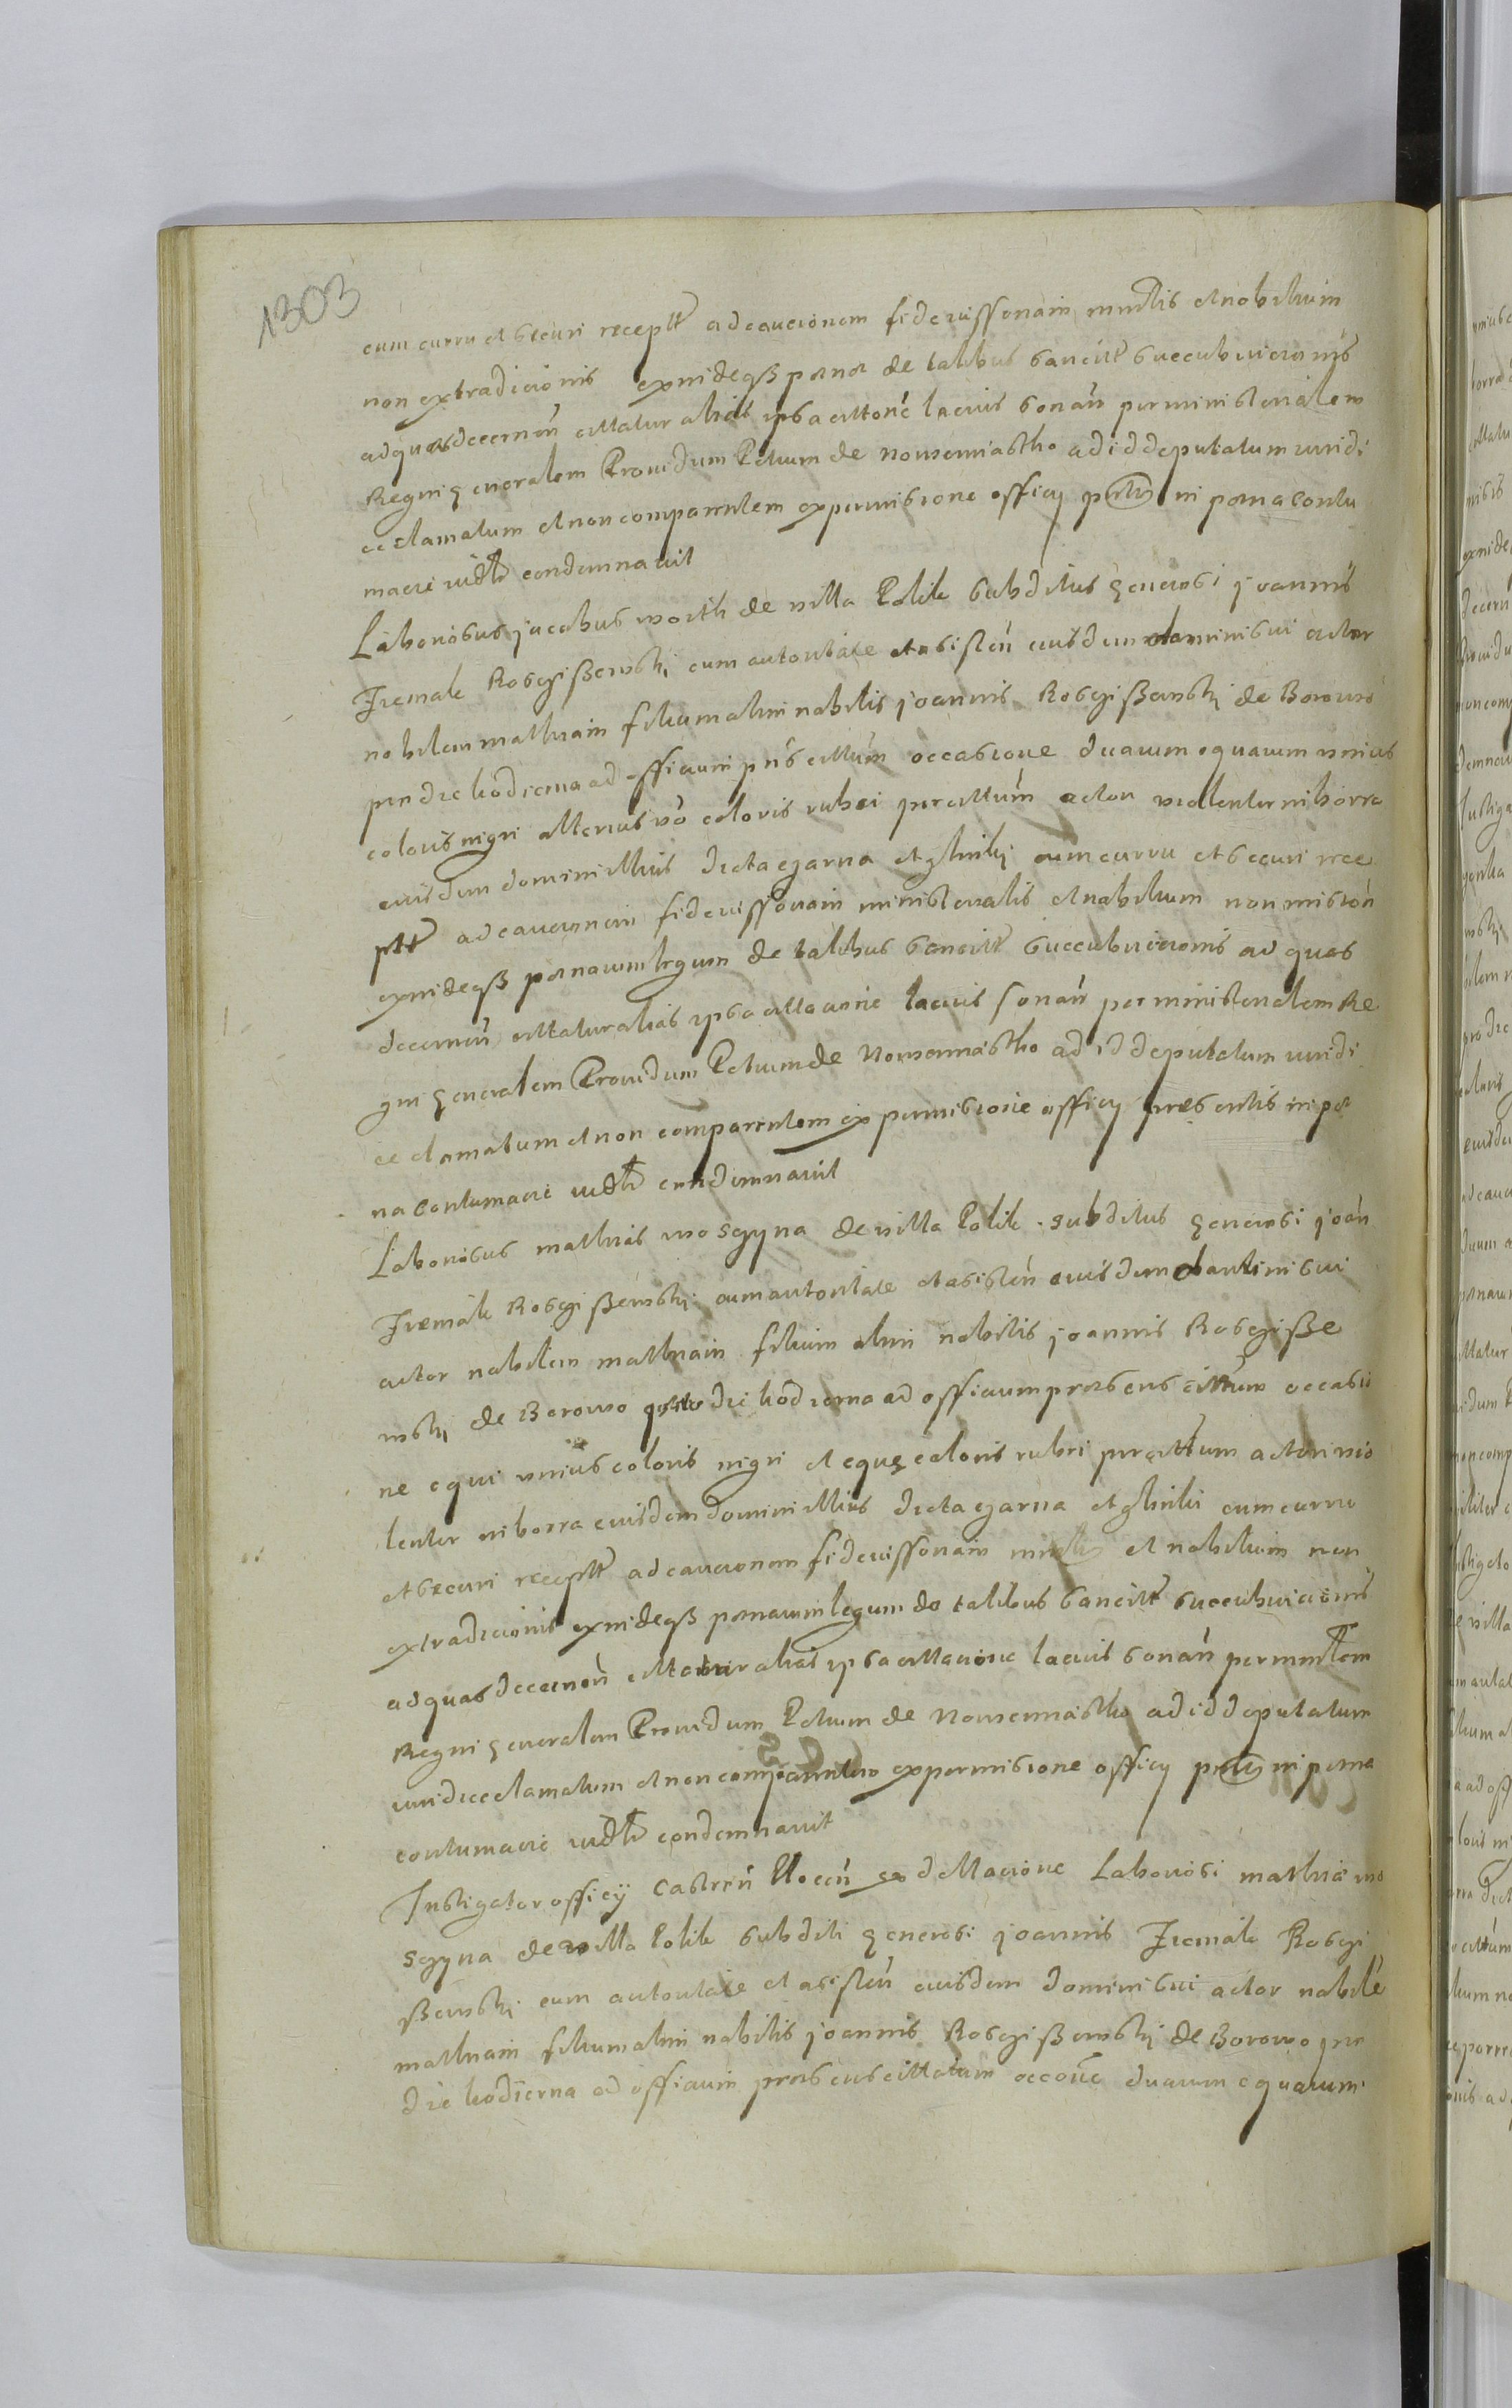 1303
cum curru et securi receptt ad caucionem fideiussoriam mnrlis et nobilium
non extradicionis exindeqß penae de talibus sancitt succubuicionis
ad quas decernen cittatur alias ipsa cittone lacius sonan per ministerialem
Regni generalem Providum Petrum de nowemiastho ad id deputatum iuridi
ce clamatum et non comparentem ex permissione officy pntis in pena contu
macie iudtr condemnavit
Laboriosus jacobus woith de villa Polik subditus generosi joannis
Jremak Rosczißewski cum autoritate et asisten eiusdem domini sui actor
nobilem mathiam filium olim nobilis joannis Rosczißewski de Borowo
pro die hodierna ad officium pns cittum occasione duarum equarum unius
coloris nigri alterius vo coloris rubei per cittum actori violenter in borra
eiusdem domini illius dicta czarna et glinki cum curru et securi rece
ptt ad caucionem fideiussoriam ministerialis et nobilium non mission
exindeqß penarum legum de talibus sancitt succubuicionis ad quas
decernen cittatur alias ipsa cittacione lacius sonan per ministerialem Re
gni generalem Providum Petrum de Nowemiastho ad id deputatum iuridi
ce clamatum et non comparentem ex permissione officy presentis in pe
na contumacie iudtr condemnavit
Laboriosus mathias woszgyna de villa Polik subditus generosi joan
Jremak Rosczißewski cum autoritate et asisten eiusdem domini sui
actor nobilem mathiam filium olim nobilis joannis Rosczisße
wski de Borowo die hodierna ad officium praesens cittum occasio
ne equi unius coloris nigri et equę coloris rubri per cittum actori vio
lenter in borra eiusdem domini illius dicta czarna et glinki cum curru
et securi receptt ad caucionem fideiussoriam mnrlis et nobilium non
extradicionis exindeqß penarum legum de talibus sancitt succubuicionis
ad quas decernen cittatur alias ipsa cittacione lacius sonan per mnrlem
Regni generalem Providum Petrum de Nowemiastho ad id deputatum
iuridice clamatum et non comparentem ex permissione officy pntis in pena
contumacie iudtr condemnavit
Instigator officy castren Plocen ex dellacione Laboriosi mathiae wo
szgyna de villa Polik subditi generosi joannis Jremak Rosczi
ßewski cum autoritate et asisten eiusdem domini sui actor nobile
mathiam filium olim nobilis joannis Rosczißewski de Borowo pro
die hodierna ad officium praesens cittatum occone duarum equarum